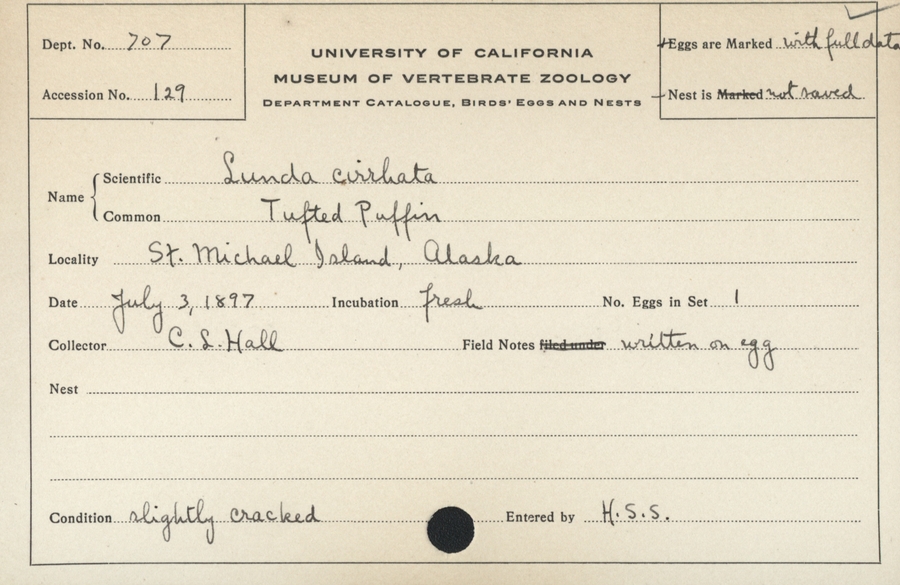 Dept. No. 707
Accession No. 129
UNIVERSITY OF CALIFORNIA
MUSEUM OF VERTEBRATE ZOOLOGY
DEPARTMENT CATALOGUE, BIRDS' EGGS AND NESTS
Eggs are Marked with full data
Nest is Marked not saved
Name
Scientific Lunda cirrhata
Common Tufted Puffin
Locality St. Michael Island, Alaska
Date July 3, 1897 Incubation fresh No. Eggs in Set 1
Collector C. L. Hall Field Notes filed under written on egg
Nest
Condition slightly cracked Entered by H.S.S.